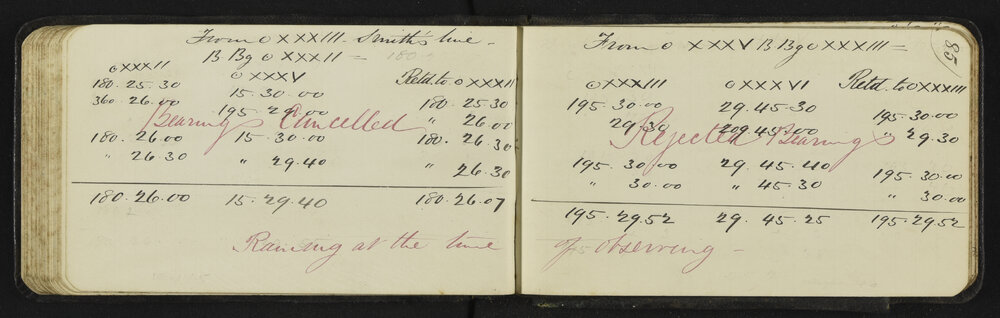 From ⊙ XXXIII Smith's line -
B Bg ⊙ XXXII =
⊙XXXII ⊙XXXV Retd. to ⊙XXXII
180. 25. 30 15. 30. 00 180. 25. 30
360. 26. 00 195. 29. 00 " 26. 00
Bearings Cancelled
180. 26. 00 15. 30. 00 180. 26. 30
" 26. 30 " 29. 40 " 26. 30
180. 26. 00 15. 29. 40 180. 26. 07
Raining at the time
85
From ⊙ XXXV B Bg ⊙ XXXIII =
⊙XXXIII ⊙XXXVI Retd. to ⊙XXXIII
195. 30. 00 29. 45. 30 195. 30. 00
29. 30 209. 45. 00 " 29. 30
Rejected Bearings
195. 30. 00 29. 45. 40 195. 30. 00
" 30. 00 " 45. 30 " 30. 00
195. 29. 52 29. 45. 25 195. 29. 52
of observing -